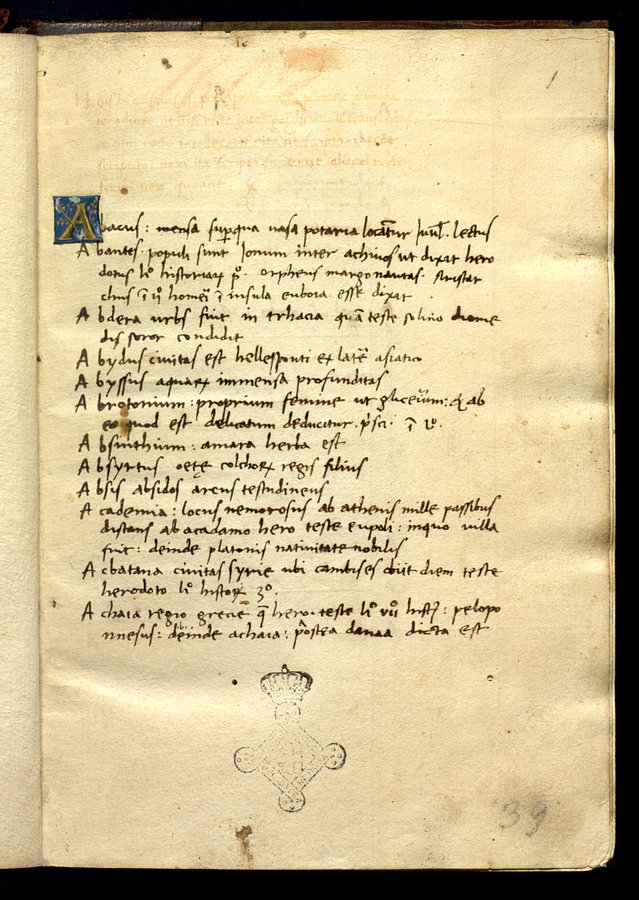 1
Abacus: mensa sup qua vasa potaria locantur Iuul. lectus
Abantes: populi sunt Ionum inter achiuos ut dixat hero
dotus li° historiaꝝ p°. orpheus in argonautas. Aristar
chus ī ij° homeri ī insula euboia esse dixat
Abdera urbs fuit in trhacia quā teste solino diome
dis soror condidit
Abydus ciuitas est hellesponti ex latē asiatico
Abyssus aquaꝝ immensa profunditas
Abrotonium: proprium femine ut gliceriū: & ab
eo quod est delicatum deducitur. prisci. ī v°.
Absinthium: amara herba est
Absyrtus oetę colchoꝝ regis filius
Absis absidos arcus testudineus
Academia: locus nemorosus ab athenis mille passibus
distans ab acadamo hero teste eupoli: in quo uilla
fuit: deinde platonis natiuitate nobilis
Acbatana ciuitas syrie ubi cambises obiit diem teste
herodoto li° histoꝝ 3°.
Achaia regio grecie q̄ hero. teste li° vij° hist: pelopo
nnesus: deinde achaia: postea danaa dicta est
39